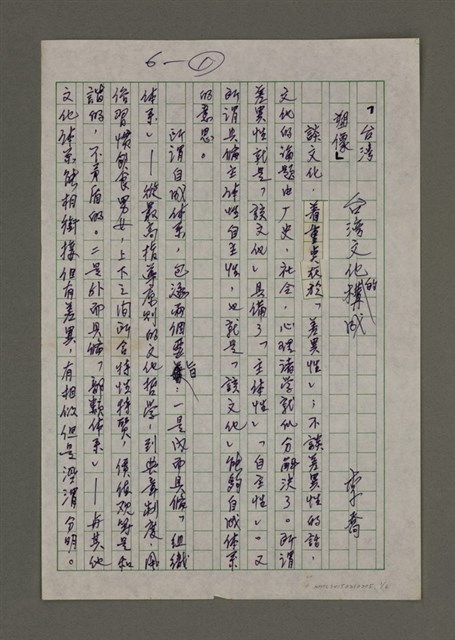 6-①
「台灣
塑像」
台灣文化的構成
李喬
談文化,着重點放在「差異性」;不談差異性的話,
文化的論題由歷史,社會,心理諸學就夠分解決了。所謂
差異性就是「該文化」具備了「主体性」「自主性」。又
所謂具備主体性自主性,也就是「該文化」能夠自成体系
的意思。
所謂自成体系,包涵兩個要旨:一是內而具備「組織
体系」——從最高指導原則的文化哲學,到典章制度,風
俗習慣飲食男女,上下之間所含特性特質,價值觀等是和
諧的,不矛盾的。二是外而具備「部類体系」——与其他
文化体系能相銜接但有差異,有相似但是涇渭分明。